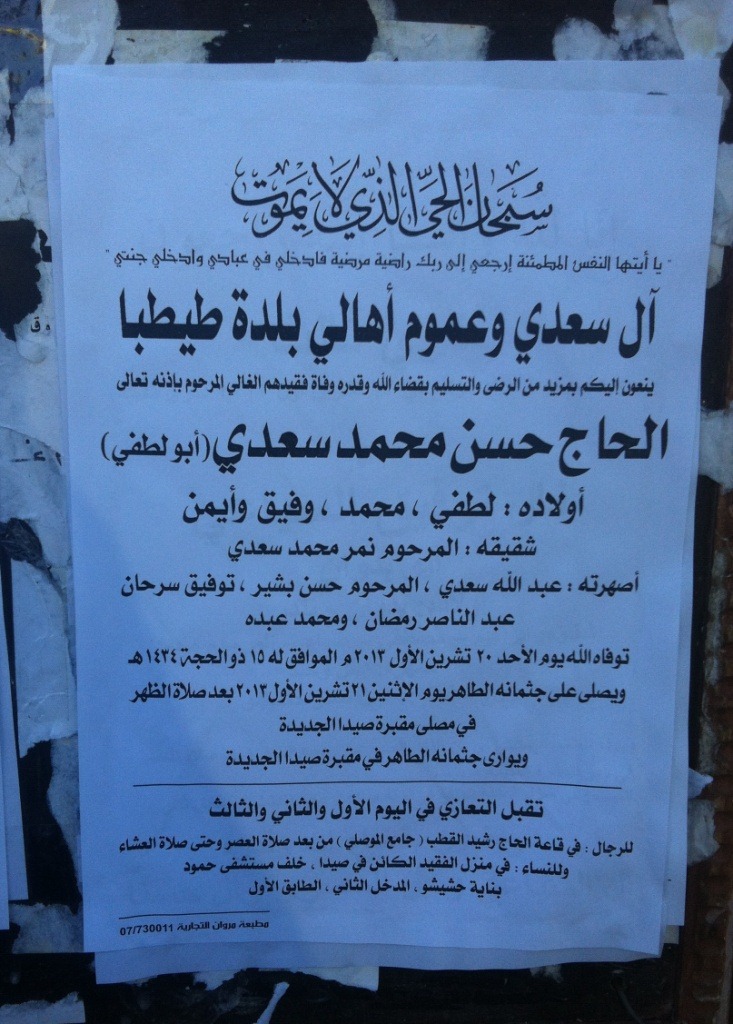 سُبْحَانَ الحَيِّ الَّذِي لاَ يَمُوتُ
" يا أيتها النفس المطمئنة إرجعي إلى ربك راضية مرضية فادخلي في عبادي وادخلي جنتي "
آل سعدي وعموم أهالي بلدة طيطبا
ينعون إليكم بمزيد من الرضى والتسليم بقضاء الله وقدره وفاة فقيدهم الغالي المرحوم بإذنه تعالى
الحاج حسن محمد سعدي (أبو لطفي)
أولاده : لطفي ، محمد ، وفيق وأيمن
شقيقه : المرحوم نمر محمد سعدي
أصهرته : عبد الله سعدي ، المرحوم حسن بشير ، توفيق سرحان
عبد الناصر رمضان ، ومحمد عبده
توفاه الله يوم الأحد ٢٠ تشرين الأول ٢٠١٣ م الموافق له ١٥ ذو الحجة ١٤٣٤ هـ
ويصلى على جثمانه الطاهر يوم الإثنين ٢١ تشرين الأول ٢٠١٣ بعد صلاة الظهر
في مصلى مقبرة صيدا الجديدة
ويوارى جثمانه الطاهر في مقبرة صيدا الجديدة
تقبل التعازي في اليوم الأول والثاني والثالث
للرجال : في قاعة الحاج رشيد القطب ( جامع الموصلي ) من بعد صلاة العصر وحتى صلاة العشاء
وللنساء : في منزل الفقيد الكائن في صيدا ، خلف مستشفى حمود
بناية حشيشو ، المدخل الثاني ، الطابق الأول
مطبعة مروان التجارية 07/730011